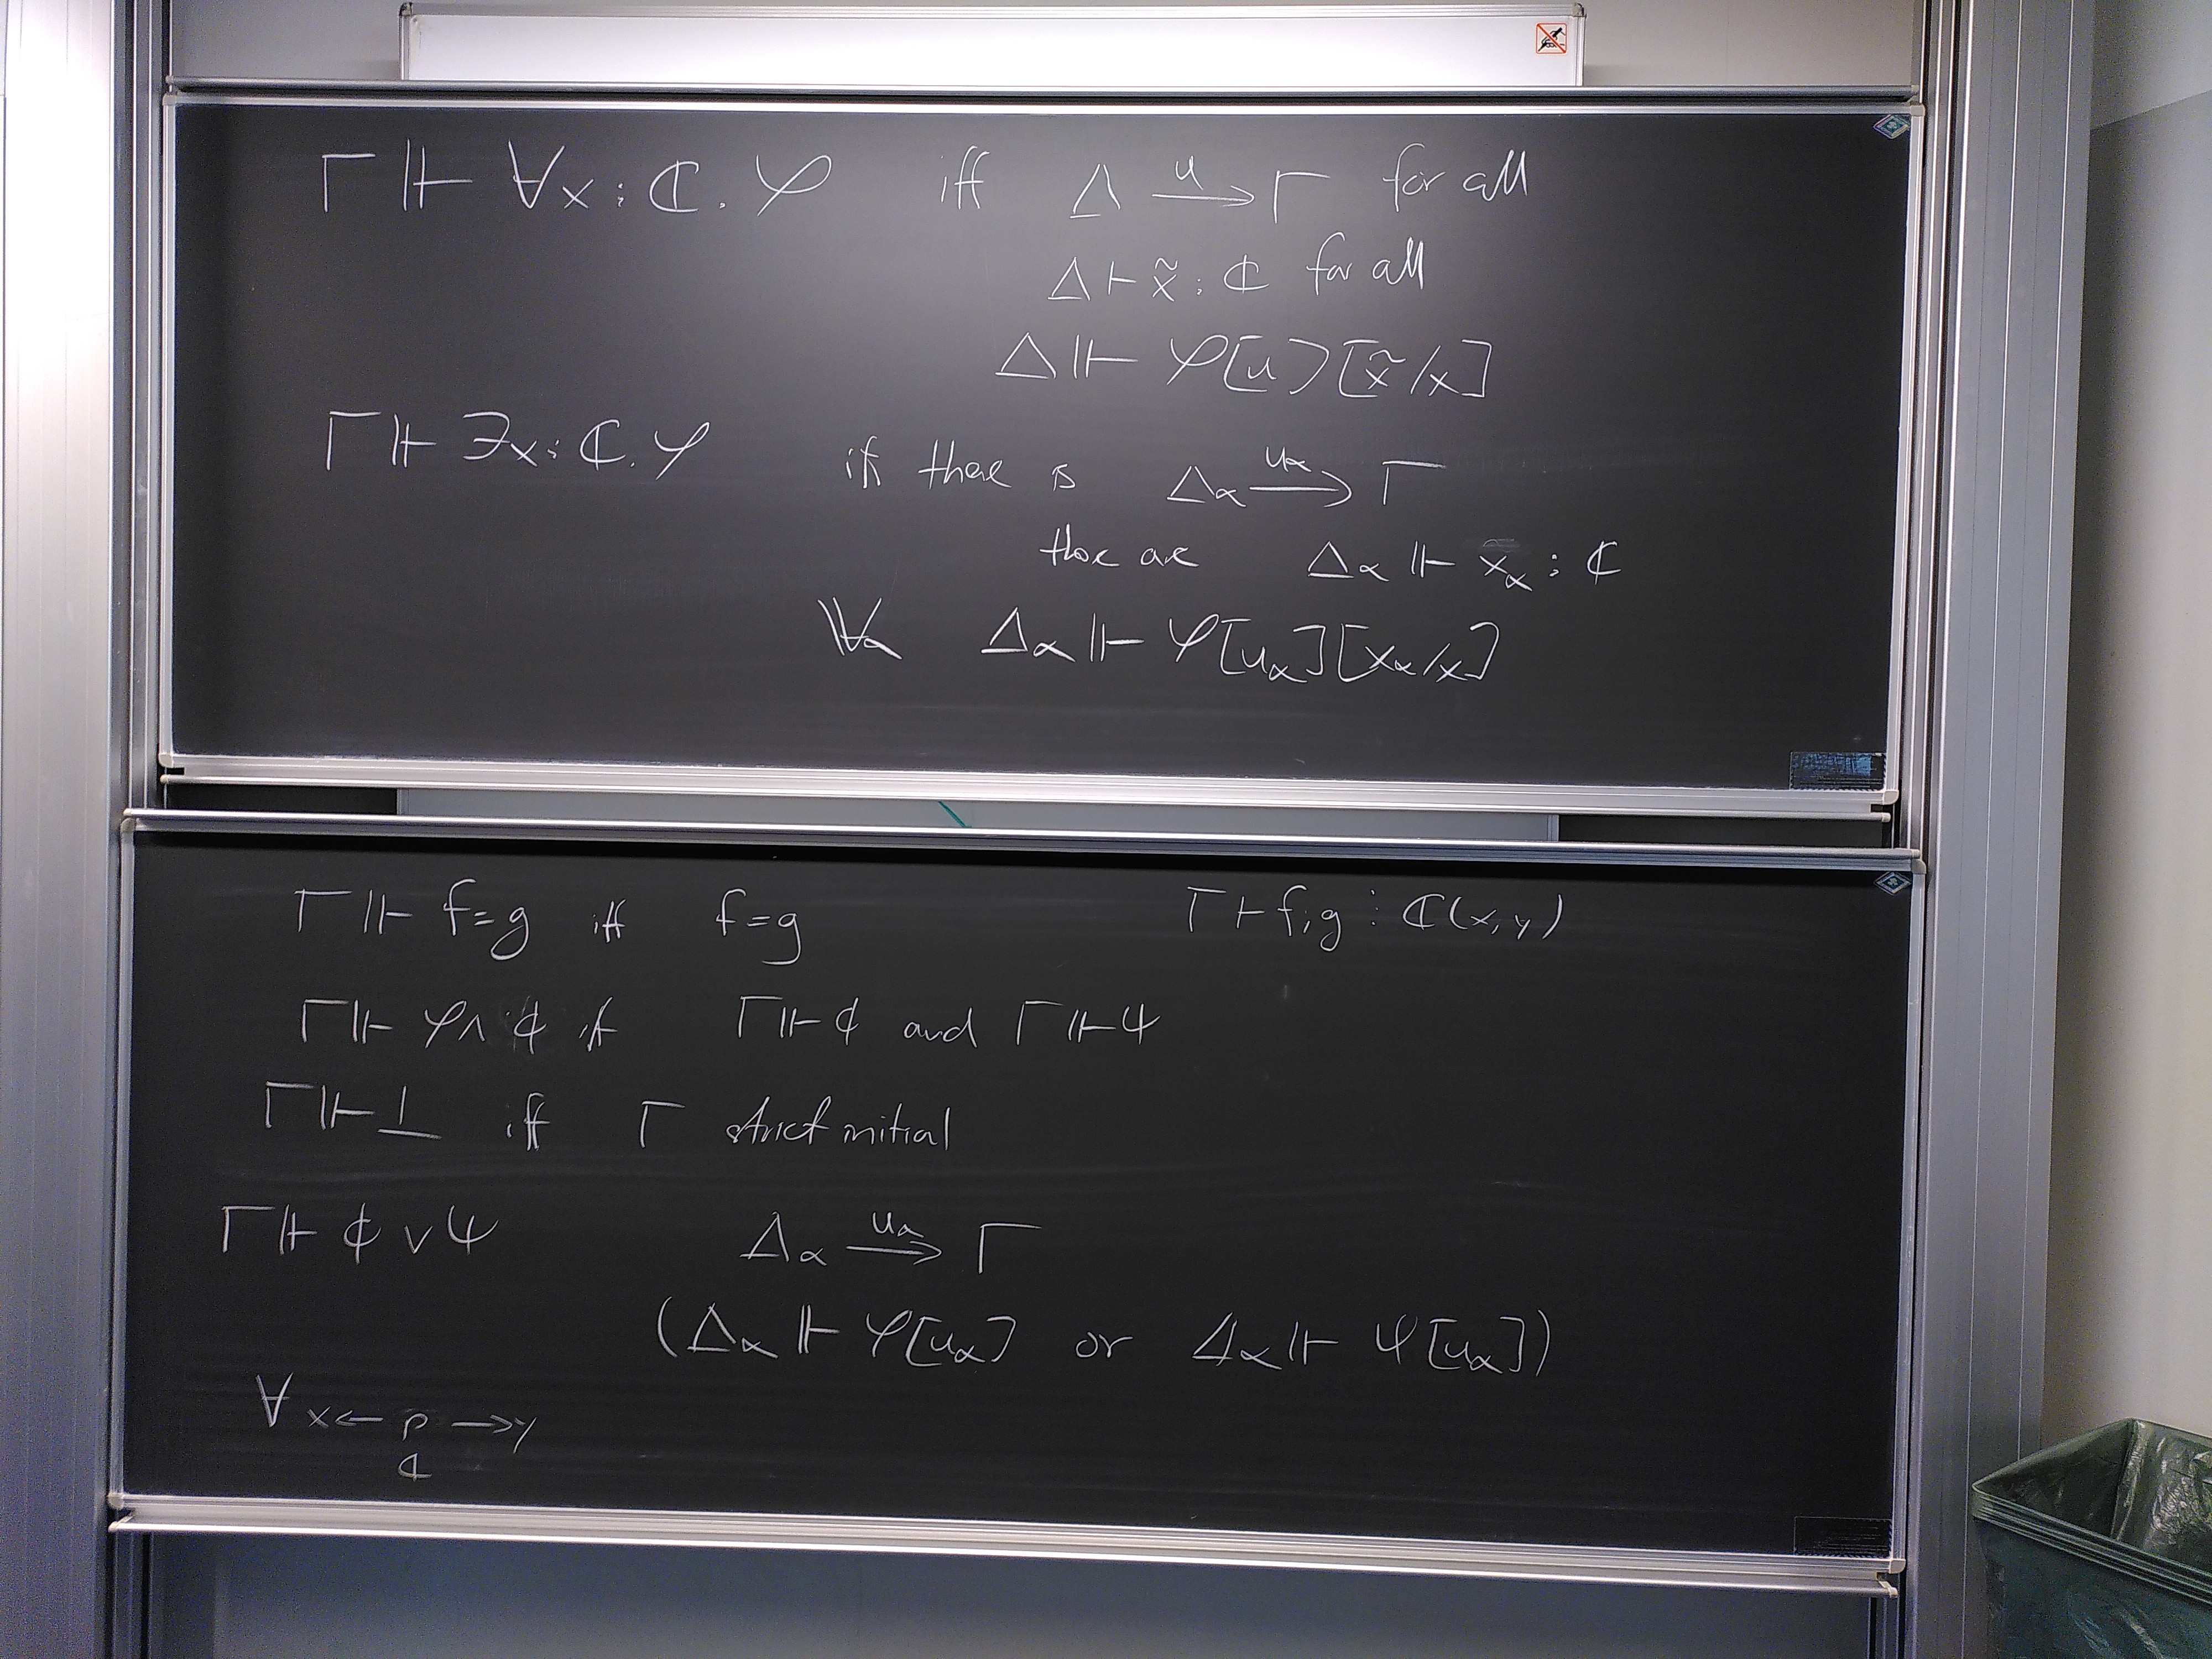 Γ ⊩ ∀x : ℂ. φ iff Δ —u→ Γ for all
Δ ⊢ x̃ : ℂ for all
Δ ⊩ φ[u][x̃/x]
Γ ⊩ ∃x : ℂ. φ iff there is Δα —uα→ Γ
there are Δα ⊩ xα : ℂ
∀α Δα ⊩ φ[uα][xα/x]
Γ ⊩ f=g iff f=g Γ ⊢ f,g : ℂ(x,y)
Γ ⊩ φ ∧ ϕ if Γ ⊩ ϕ and Γ ⊩ ψ
Γ ⊩ ⊥ iff Γ strict initial
Γ ⊩ ϕ ∨ ψ Δα —uα→ Γ
(Δα ⊩ φ[uα] or Δα ⊩ ψ[uα])
∀ x ← p → y
ℂ